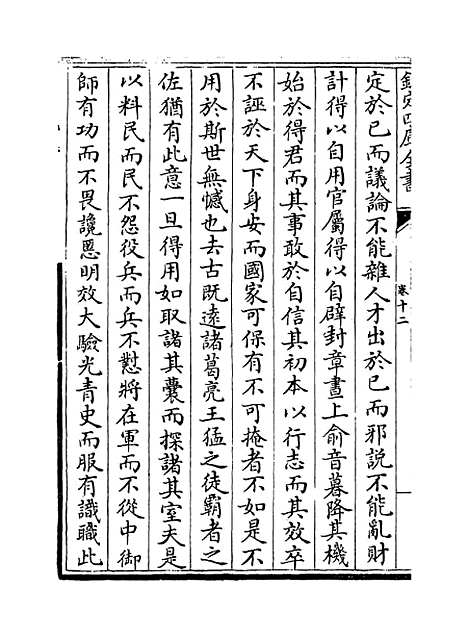 欽定四庫全書
卷十二
定於已而議論不能雜人才出於已而邪說不能亂財
計得以自用官屬得以自辟封章晝上俞音暮降其機
始於得君而其事敢於自信其初本以行志而其效卒
不誣於天下身安而國家可保有不可掩者不如是不
用於斯世無憾也去古既遠諸葛亮王猛之徒霸者之
佐猶有此意一旦得用如取諸其囊而探諸其室夫是
以料民而民不怨役兵而兵不懟將在軍而不從中御
師有功而不畏讒慝明效大驗光青史而服有識職此